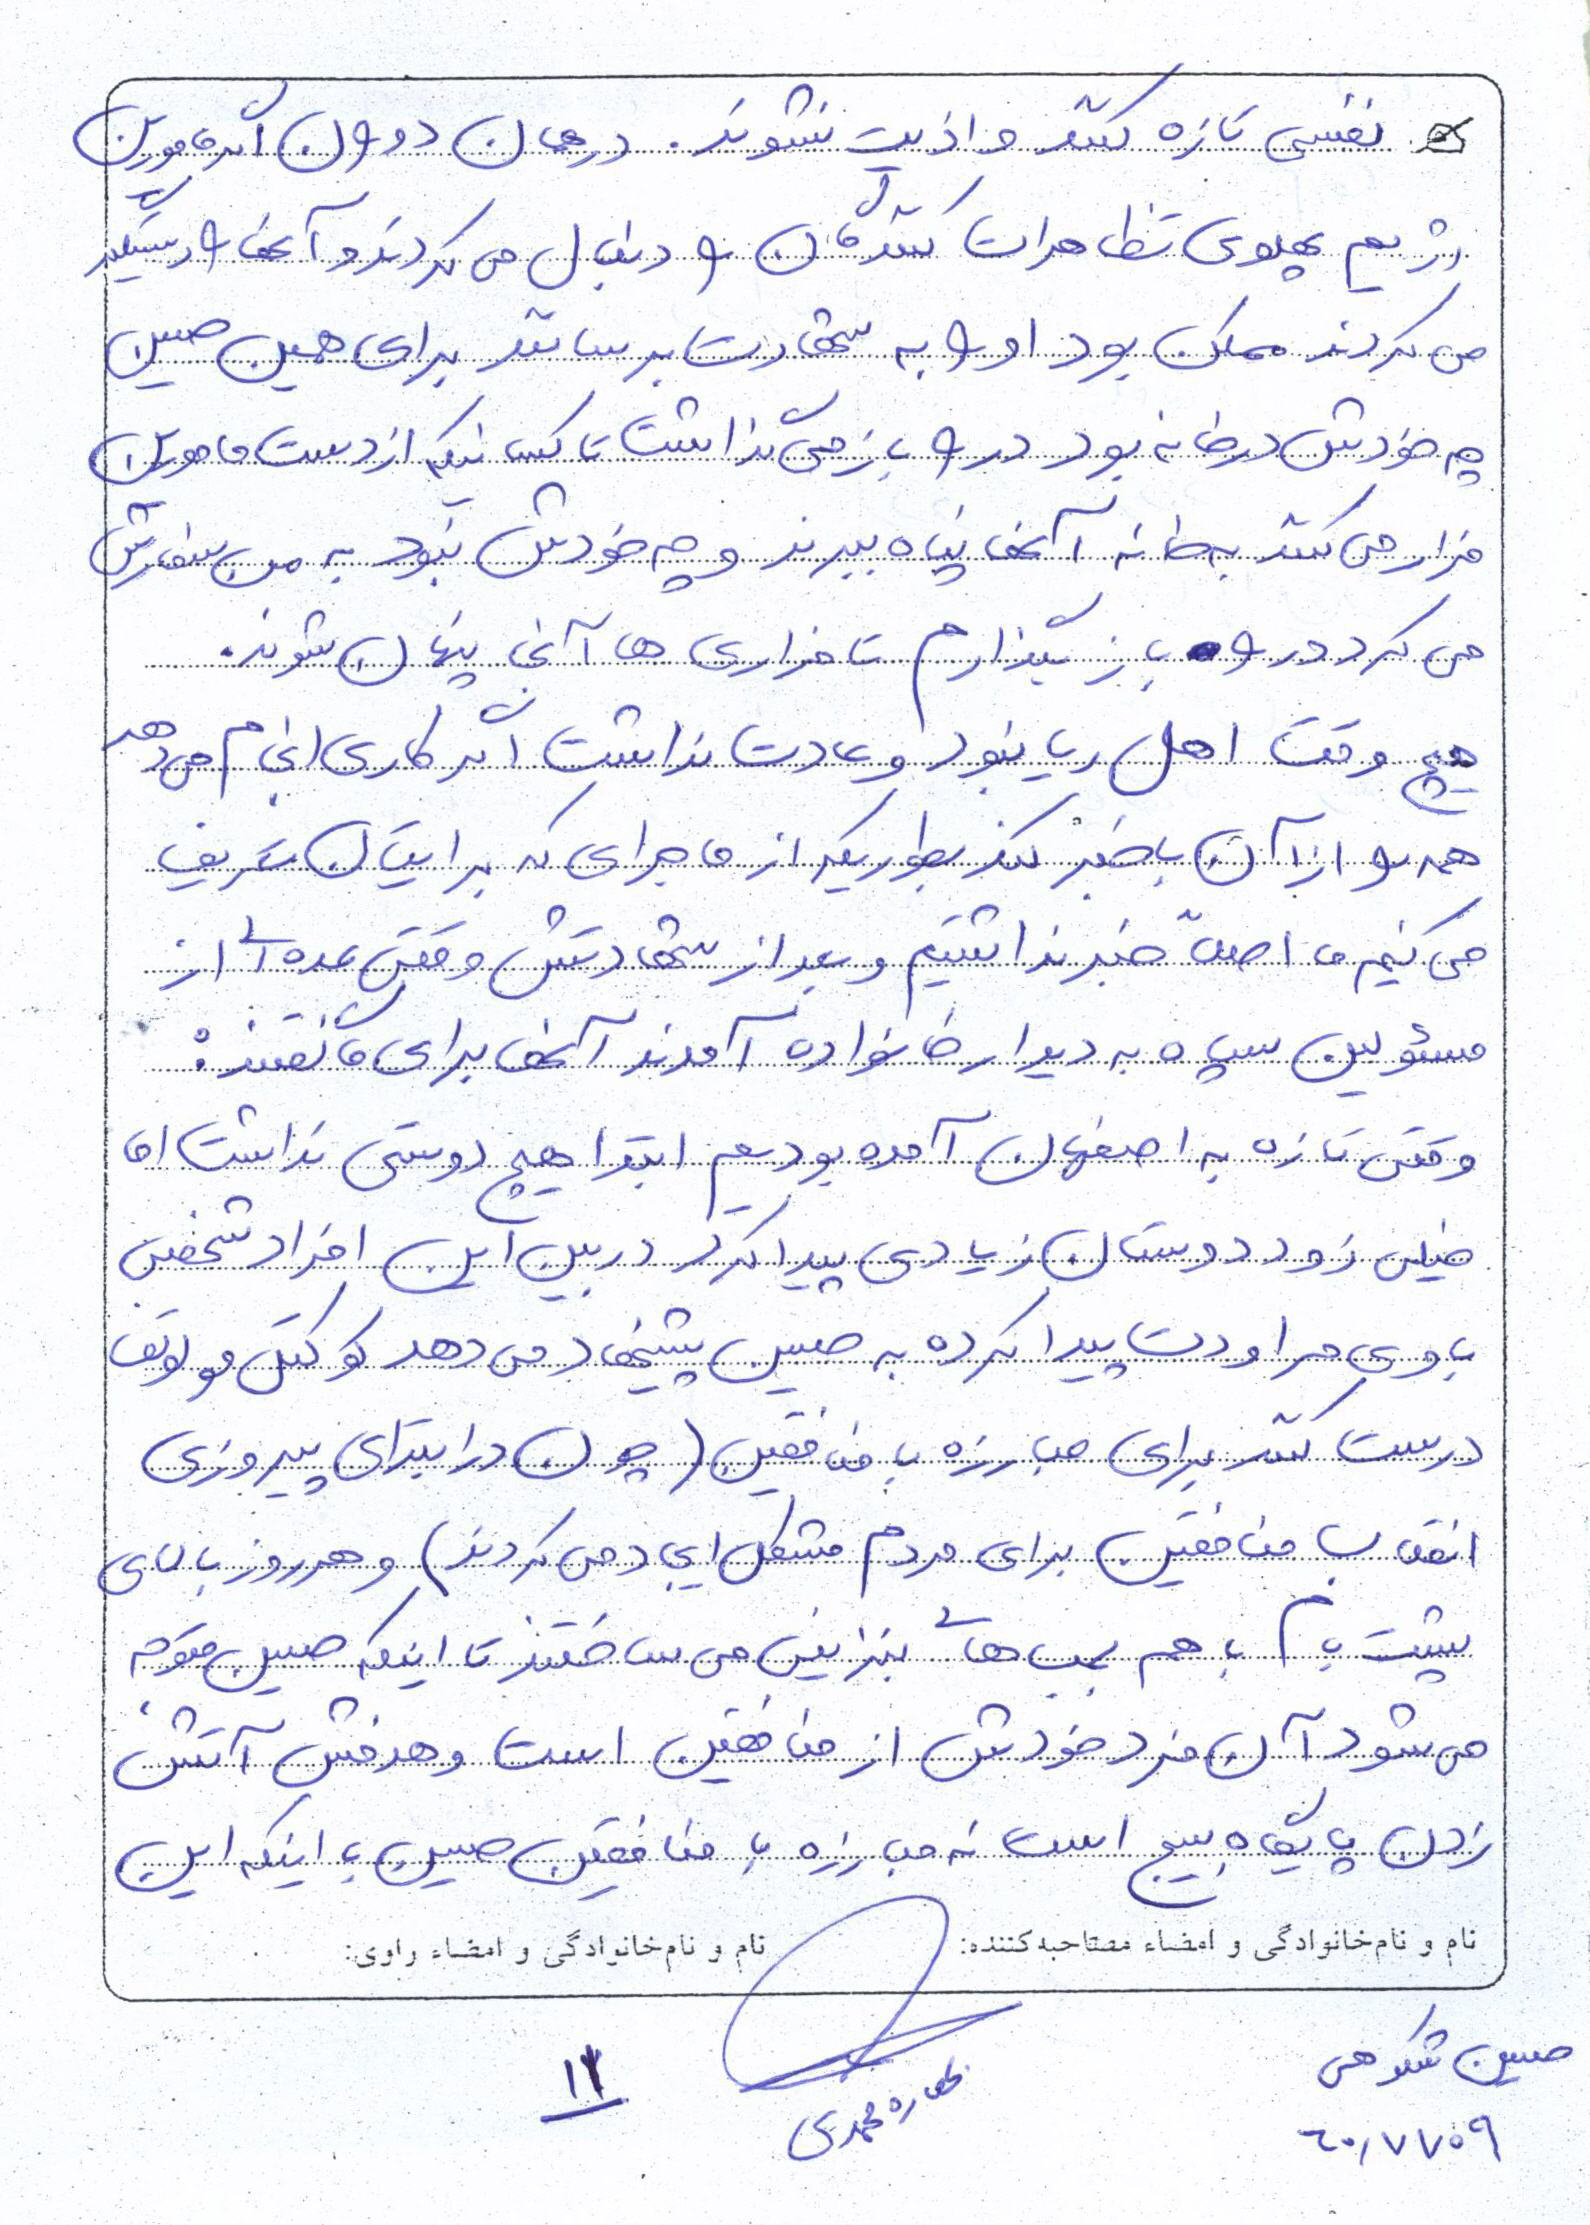 نفسی تازه کنند و اذیت نشوند. در همان دوران اگر مامورین
رژیم پهلوی تظاهرات کنندگان را دنبال می کردند و آنها را دستگیر
می کردند ممکن بود او را به شهادت برسانند برای همین حسین
چه خودش در خانه بود در را باز می گذاشت تا کسانیکه از دست مامورین
فرار می کنند به خانه آنها پناه ببرند و چه خودش نبود به من سفارش
می کرد در را باز بگذارم تا فراری ها آنجا پنهان شوند.
هیچ وقت اهل ریا نبود و عادت نداشت اگر کاری انجام می دهد
همه را از آن باخبر کند بطوریکه از ماجرای که برایتان تعریف
می کنیم ما اصلاً خبر نداشتیم و بعد از شهادتش وقتی عده ای از
مسئولین سپاه به دیدار خانواده آمدند آنها برای ما گفتند:
وقتی تازه به اصفهان آمده بودیم ابتدا هیچ دوستی نداشت اما
خیلی زود دوستان زیادی پیدا کرد در بین این افراد شخصی
با وی مراودت پیدا کرده به حسین پیشنهاد می دهد کوکتل مولوتف
درست کنند برای مبارزه با منافقین (چون در ابتدای پیروزی
انقلاب منافقین برای مردم مشکل ایجاد می کردند) و هر روز بالای
پشت بام با هم بمب های بنزینی می ساختند تا اینکه حسین متوجه
می شود آن فرد خودش از منافقین است و هدفش آتش
زدن پایگاه بسیج است نه مبارزه با منافقین حسین با اینکه این
نام و نام‌خانوادگی و امضاء مصاحبه‌کننده:
نام و نام‌خانوادگی و امضاء راوی:
حسین شکوهی
محمدی
۶۰۱۷۷۰۹